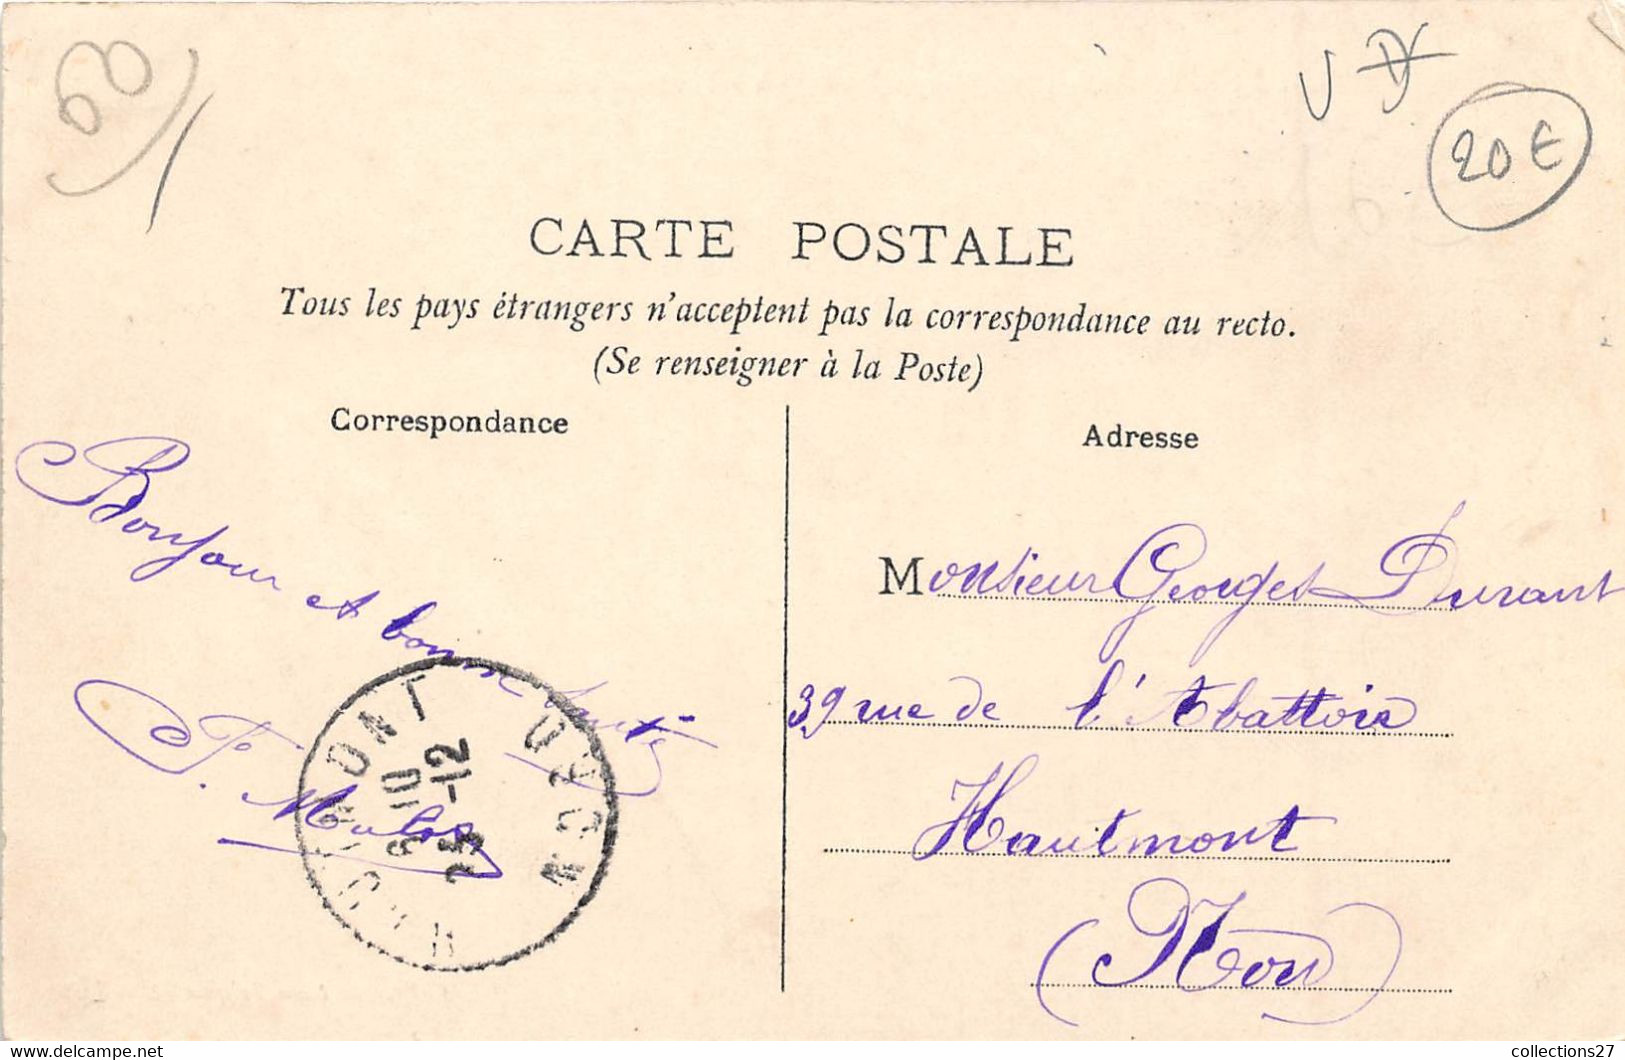 60
U
20€
CARTE POSTALE
Tous les pays étrangers n'acceptent pas la correspondance au recto.
(Se renseigner à la Poste)
Correspondance
Adresse
Bonjour et bonne
F.
HAUTMONT NORD
6 10
25 -12
Monsieur Georges Durant
39 rue de l'Abattoir
Hautmont
(Nord)
collections27